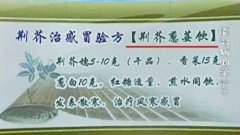 荆芥治感冒验方【荆芥葱姜饮】
荆芥穗5-10克（干品），香菜15克
葱白10克，红糖适量，煎水闻饮，
发表散寒，治疗风寒感冒